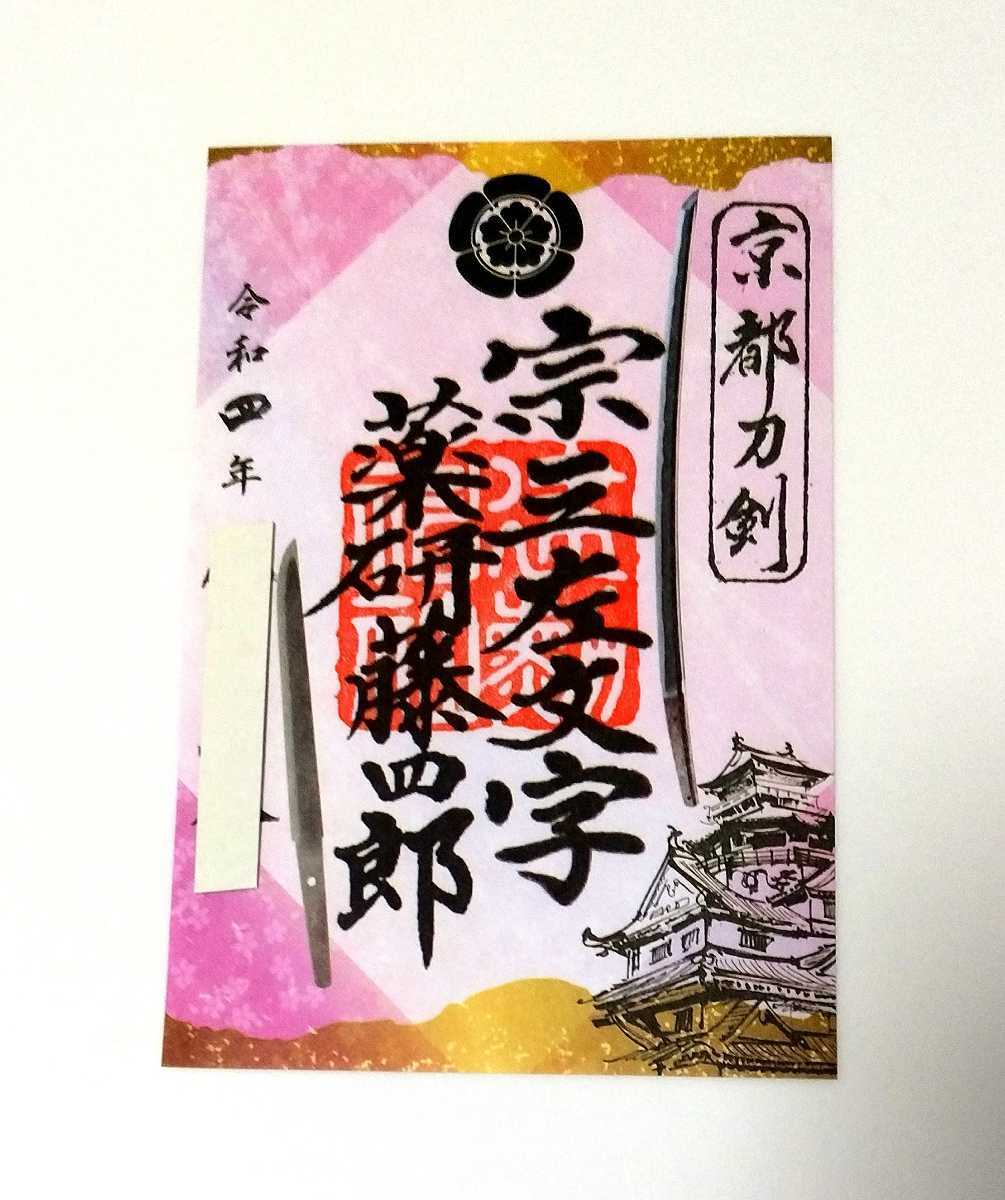 京都刀剣
宗三左文字
薬研藤四郎
令和四年